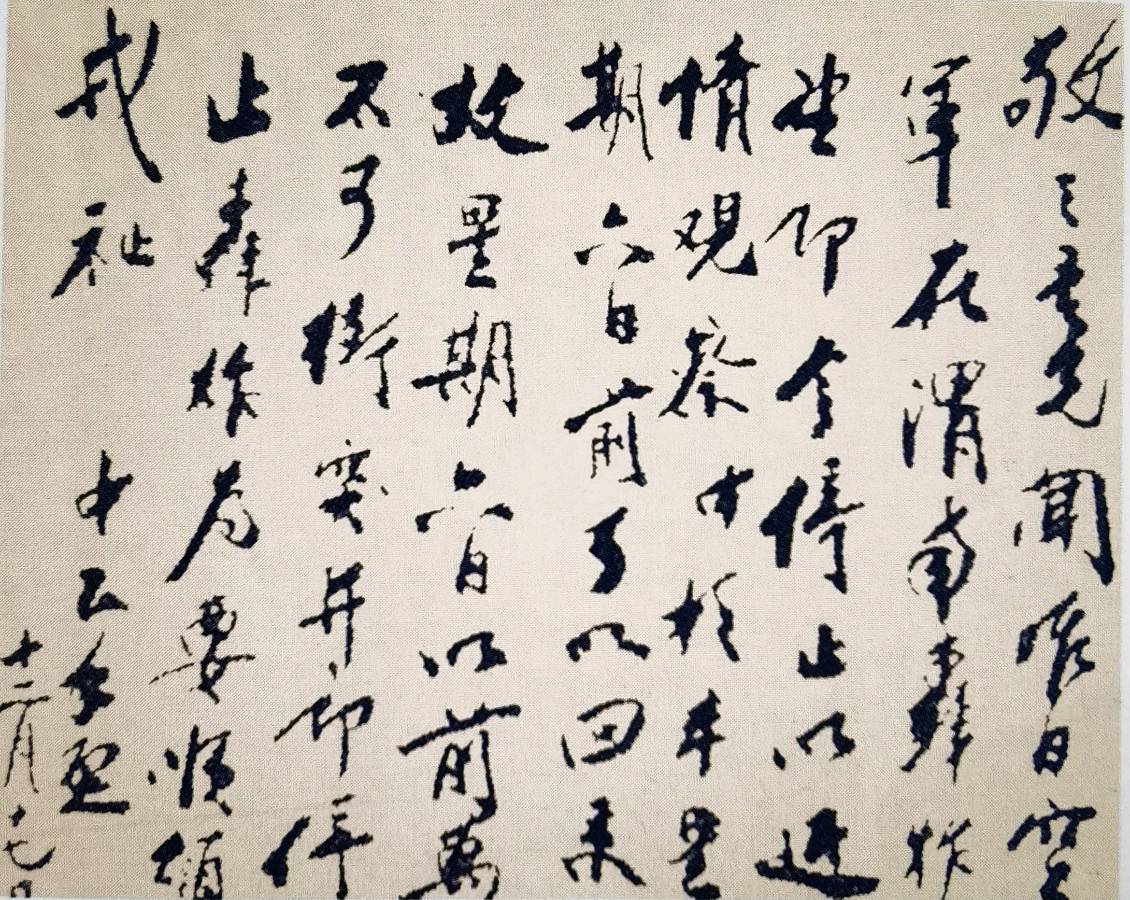 敬之吾兄聞昨日空
軍在渭南轟炸
望即令停止以近
情观察中於本星
期六日前可以回来
故星期六日以前萬
不可衝突并即停
止轟炸為要順頌
戎祉
中正手啟
十二月十七日